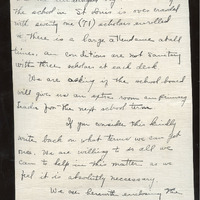 The school in St. Louis is over crowded
with seventy one (71) scholars enrolled
there is a large attendance at all
times. conditions are not sanitary
with three scholars at each desk
We are asking if the school board
will give us an extra room and primary
teacher for the next school term.
If you consider this kindly
write back on what terms we can get
one. We are willing to do all we
can to help in this matter as we
feel it is absolutely necessary.
We are herewith enclosing the